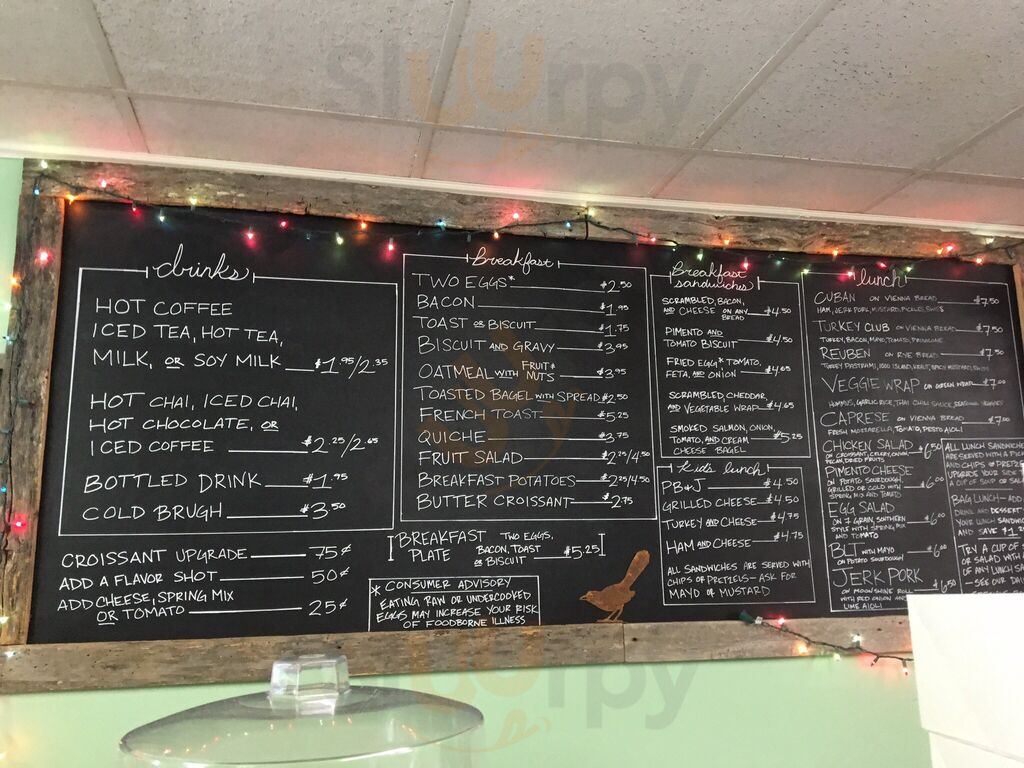 Sluurpy
drinks
HOT COFFEE
ICED TEA, HOT TEA,
MILK, OR SOY MILK $1.95/2.35
HOT CHAI, ICED CHAI,
HOT CHOCOLATE, OR
ICED COFFEE $2.25/2.65
BOTTLED DRINK $1.95
COLD BRUGH $3.50
CROISSANT UPGRADE 75¢
ADD A FLAVOR SHOT 50¢
ADD CHEESE, SPRING MIX
OR TOMATO 25¢
Breakfast
TWO EGGS* $2.50
BACON $1.95
TOAST OR BISCUIT $1.75
BISCUIT AND GRAVY $3.95
OATMEAL WITH FRUIT & NUTS $3.95
TOASTED BAGEL WITH SPREAD $2.50
FRENCH TOAST $5.25
QUICHE $3.75
FRUIT SALAD $2.25/4.50
BREAKFAST POTATOES $2.25/4.50
BUTTER CROISSANT $2.75
BREAKFAST PLATE TWO EGGS,
BACON, TOAST
OR BISCUIT $5.25
* CONSUMER ADVISORY
EATING RAW OR UNDERCOOKED
EGGS MAY INCREASE YOUR RISK
OF FOODBORNE ILLNESS
Breakfast
sandwiches
SCRAMBLED, BACON,
AND CHEESE ON ANY BREAD $4.50
PIMENTO AND
TOMATO BISCUIT $4.50
FRIED EGG* TOMATO,
FETA, AND ONION $4.65
SCRAMBLED, CHEDDAR,
AND VEGETABLE WRAP $4.65
SMOKED SALMON, ONION,
TOMATO, AND CREAM $5.25
CHEESE BAGEL
Kid's lunch
PB&J $4.50
GRILLED CHEESE $4.50
TURKEY AND CHEESE $4.75
HAM AND CHEESE $4.75
ALL SANDWICHES ARE SERVED WITH
CHIPS OR PRETZELS - ASK FOR
MAYO OR MUSTARD
lunch
CUBAN ON VIENNA BREAD $7.50
HAM, JERK PORK, MUSTARD, PICKLES, SWISS
TURKEY CLUB ON VIENNA BREAD $7.50
TURKEY, BACON, MAYO, TOMATO, PROVOLONE
REUBEN ON RYE BREAD $7.50
TURKEY PASTRAMI, 1000 ISLAND, KRAUT, SWISS
VEGGIE WRAP ON GREEN WRAP $7.00
HUMMUS, GARLIC RICE, THAI CHILI SAUCE, VEGGIES
CAPRESE ON VIENNA BREAD $7.00
FRESH MOZZARELLA, TOMATO, PESTO AIOLI
CHICKEN SALAD $6.50
ON CROISSANT, CELERY, ONION,
PECAN, DRIED FRUITS
PIMENTO CHEESE
ON POTATO SOURDOUGH, $6.00
GRILLED OR COLD WITH
SPRING MIX AND TOMATO
EGG SALAD
ON 7 GRAIN, SOUTHERN $6.00
STYLE WITH SPRING MIX
AND TOMATO
BLT WITH MAYO $6.00
ON POTATO SOURDOUGH
JERK PORK $6.50
ON MOONSHINE ROLL
WITH RED ONION AND
LIME AIOLI
ALL LUNCH SANDWICHES
ARE SERVED WITH A
AND CHIPS OR
UPGRADE YOUR SIDE
A CUP OF SOUP OR
BAG LUNCH - ADD
DRINK AND DESSERT
YOUR LUNCH
AND SAVE $1
TRY A CUP OF
OR SALAD WITH
OF ANY LUNCH
- SEE OUR
Sluurpy